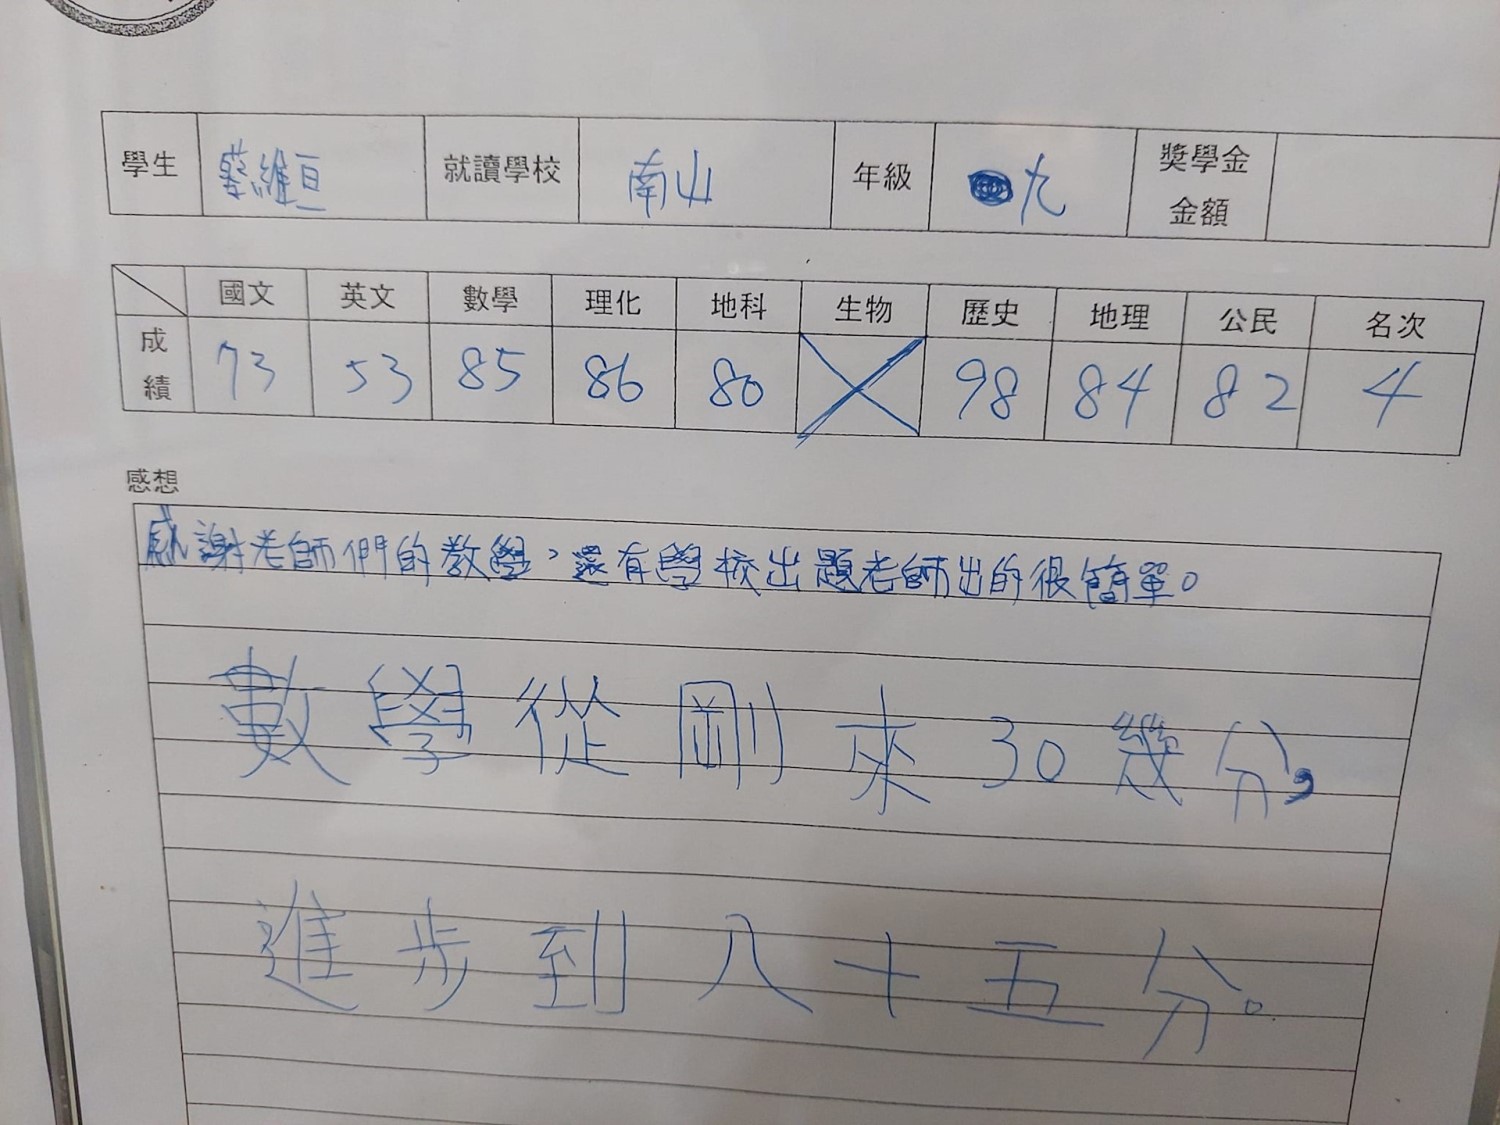 學生 蔡維亘 就讀學校 南山 年級 九 獎學金
金額
國文 英文 數學 理化 地科 生物 歷史 地理 公民 名次
成績 73 53 85 86 80 98 84 82 4
感想
感謝老師們的教學，還有學校出題老師出的很簡單。
數學從剛來30幾分，
進步到八十五分。